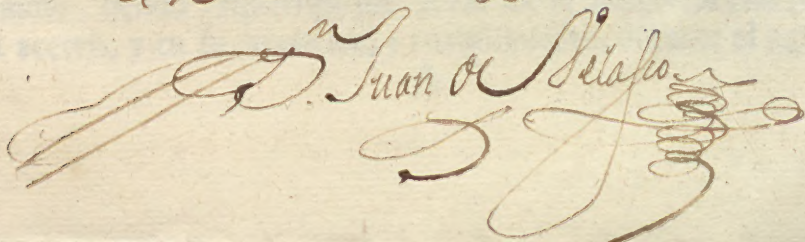 Dn. Juan de Velasco